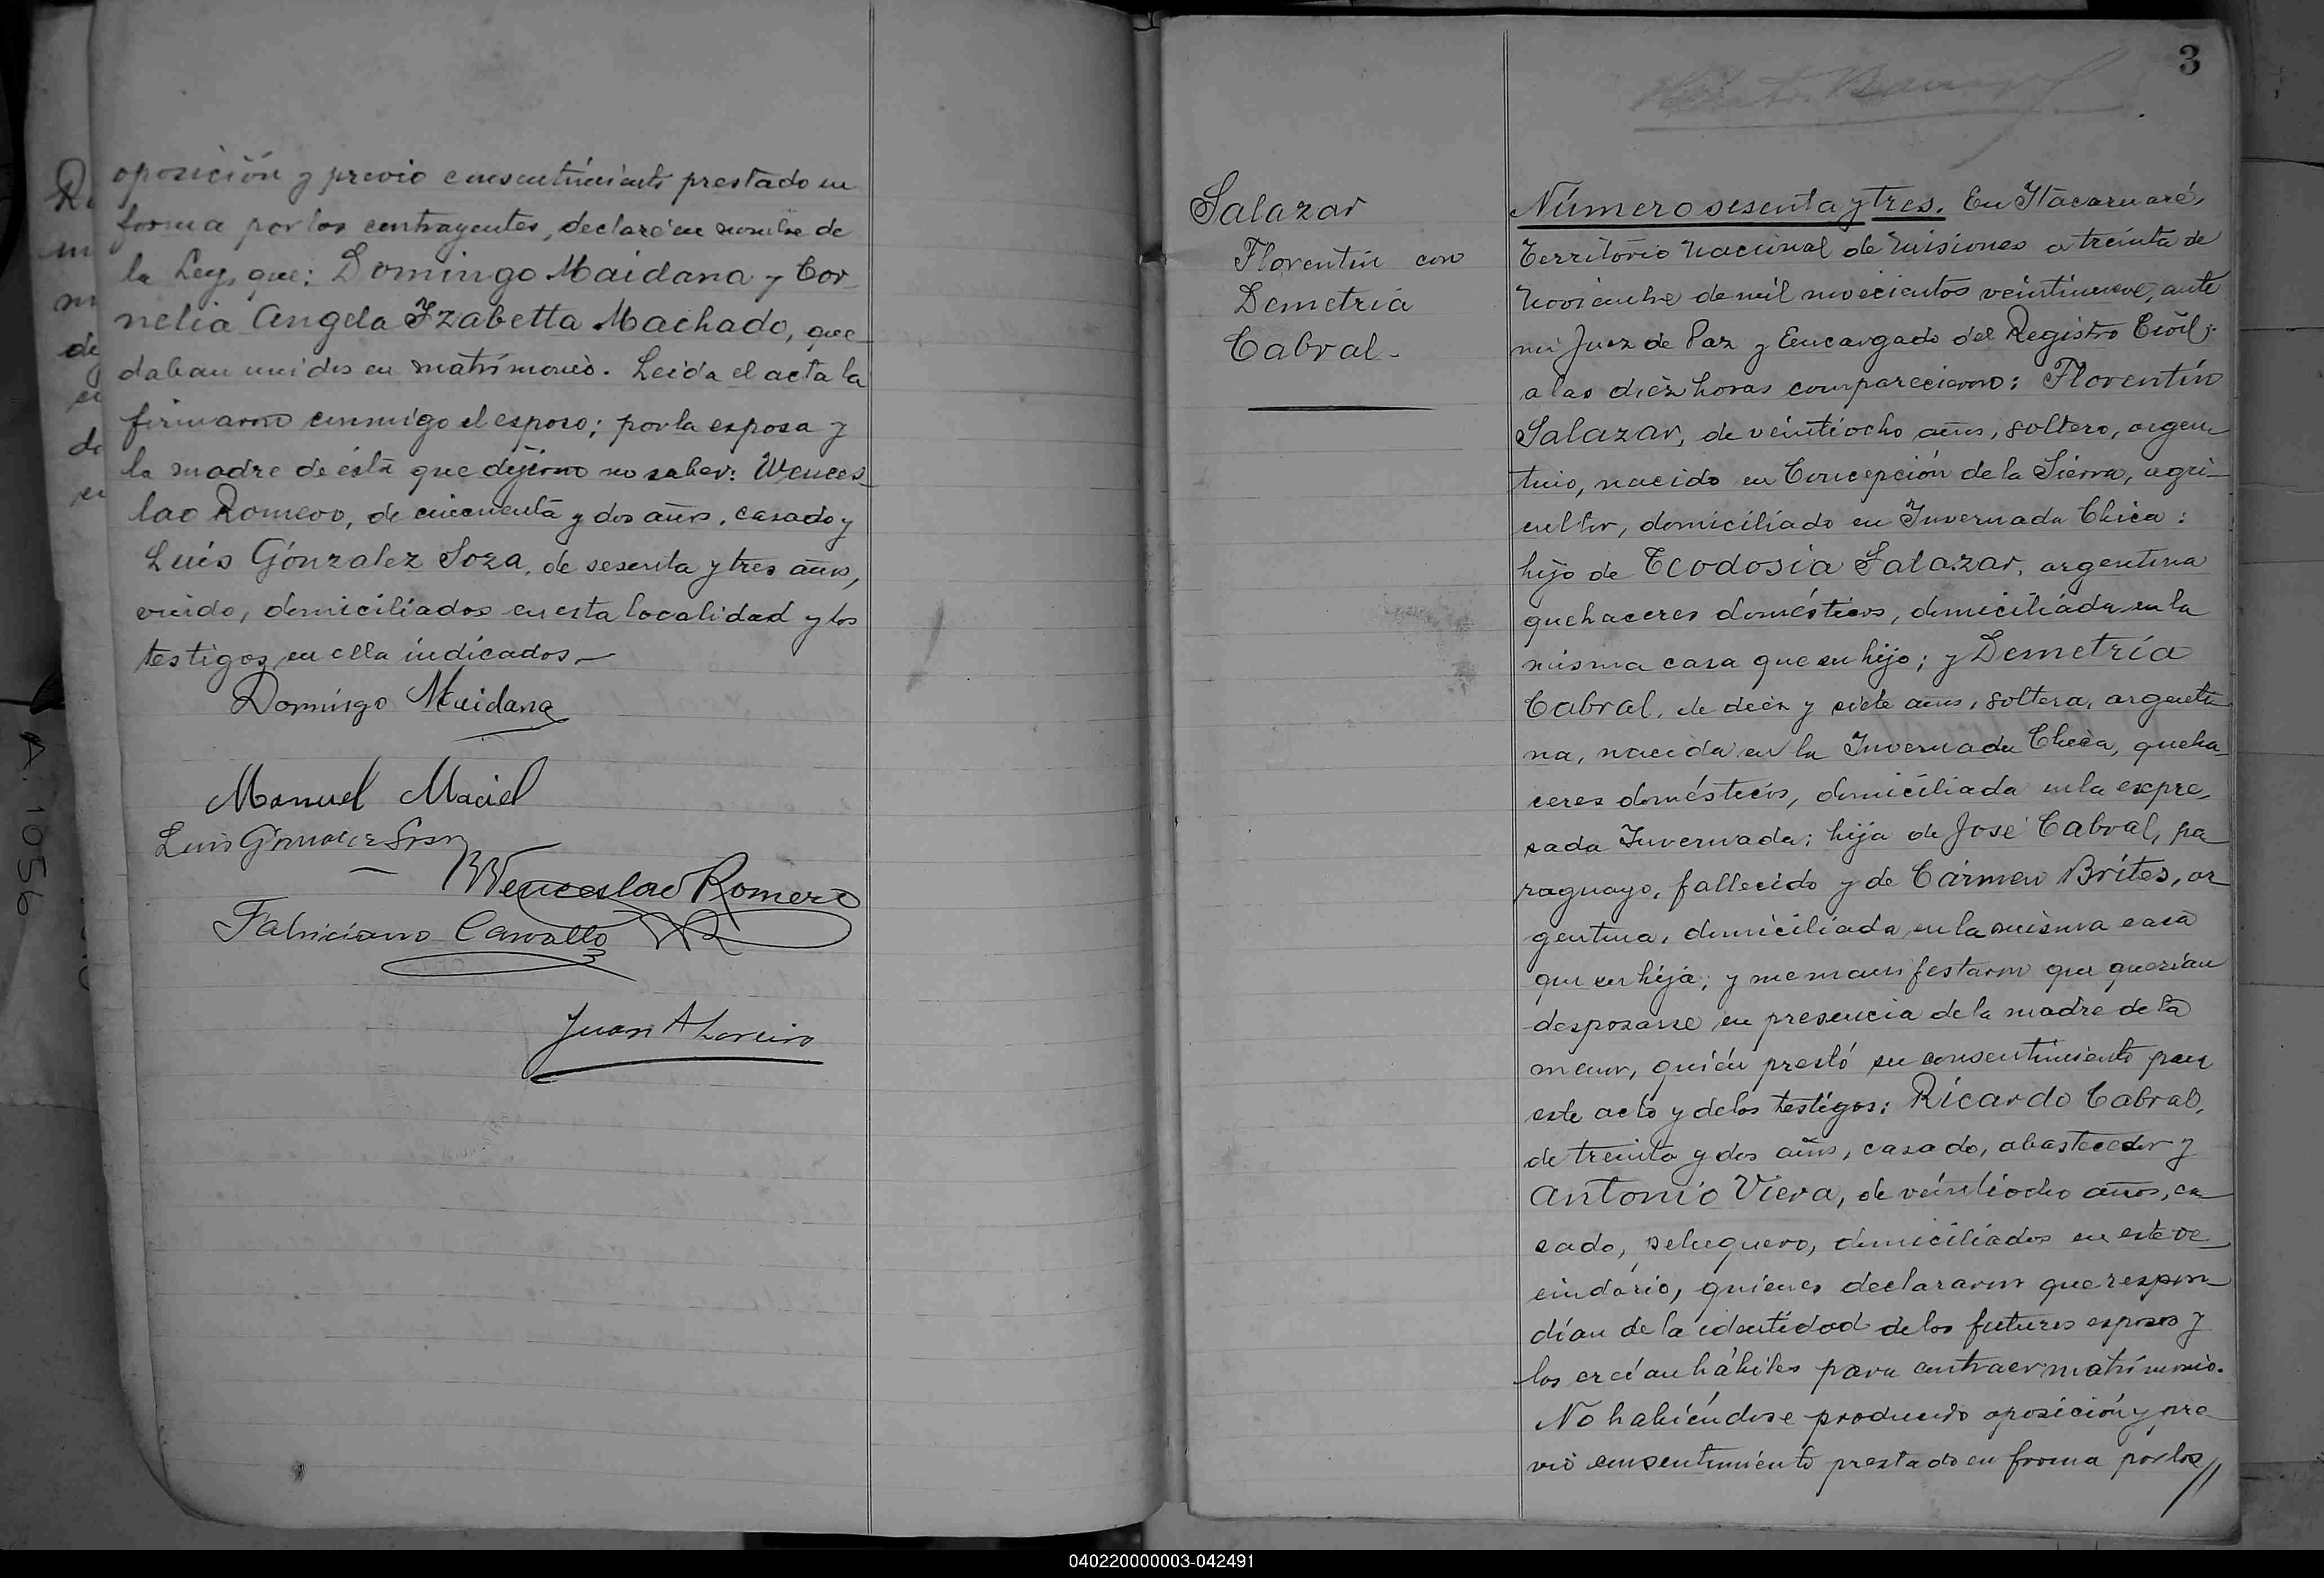 oposición y previo consentimiento prestado en
forma por los contrayentes, declaré en nombre de
la Ley, que: Domingo Maidana y Cor
nelia Angela Izabetta Machado, que
daban unidos en matrimonio. Leida el acta la
firmaron conmigo el esposo; por la esposa y
la madre de ésta que dijeron no saber: Wences
lao Romero, de cincuenta y dos años, casado y
Luis Gónzalez Soza, de sesenta y tres años,
viudo, domiciliados en esta localidad y los
testigos en ella indicados.—
Domingo Maidana
Manuel Maciel
Luis Gonzalez Soza
Wenceslao Romero
Fabriciano Carvallo
Juan A Loreiro
3
Salazar
Florentín con
Demetria
Cabral.
Número sesenta y tres. En Itacaruaré,
Territorio Nacional de Misiones a treinta de
Noviembre de mil novecientos veintinueve, ante
mi Juez de Paz y Encargado del Registro Civil;
a las diez horas comparecieron: Florentín
Salazar, de veintiocho años, soltero, argen
tino, nacido en Concepción de la Sierra, agri
cultor, domiciliado en Invernada Chica:
hijo de Teodosia Salazar, argentina
quehaceres domésticos, domiciliada en la
misma casa que su hijo; y Demetria
Cabral, de diez y siete años, soltera, argenti
na, nacida en la Invernada Chica, queha
ceres domésticos, domiciliada en la expre
sada Invernada; hija de José Cabral, pa
raguayo, fallecido y de Cármen Brítes, ar
gentina, domiciliada en la misma casa
que su hija; y me manifestaron que querían
desposarse en presencia de la madre de la
menor, quién prestó su consentimiento para
este acto y de los testigos: Ricardo Cabral,
de treinta y dos años, casado, abastecedor y
Antonio Viera, de veintiocho años, ca
sado, peluquero, domiciliados en este ve
cindario, quienes declararon que respon
dían de la identidad de los futuros esposos y
los creían hábiles para contraer matrimonio.
No habiéndose producido oposición y pre
vio consentimiento prestado en forma por los //
A. 1056
040220000003-042491